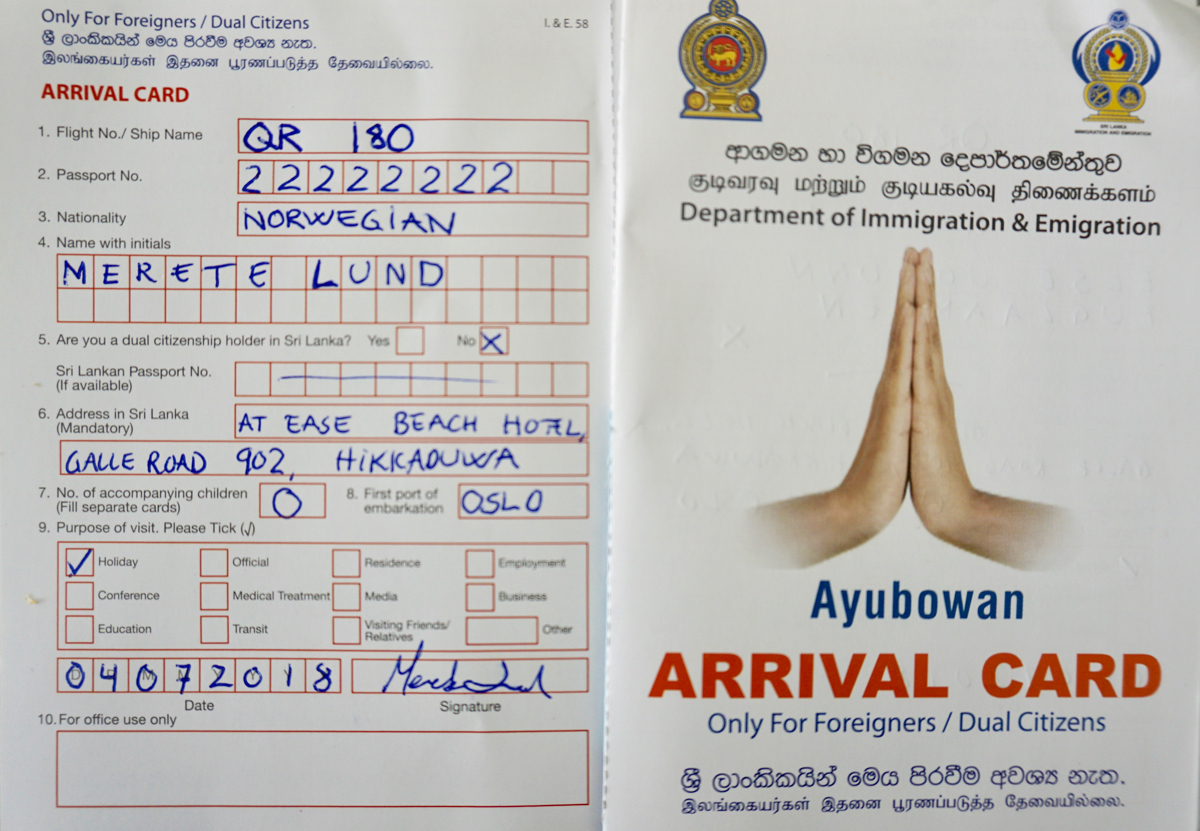 Only For Foreigners / Dual Citizens
I. & E. 58
ශ්‍රී ලාංකිකයින් මෙය පිරවීම අවශ්‍ය නැත.
இலங்கையர்கள் இதனை பூரணப்படுத்த தேவையில்லை.
ARRIVAL CARD
1. Flight No./ Ship Name QR 180
2. Passport No. 22222222
3. Nationality NORWEGIAN
4. Name with initials
MERETE LUND
5. Are you a dual citizenship holder in Sri Lanka? Yes No X
Sri Lankan Passport No.
(If available)
6. Address in Sri Lanka AT EASE BEACH HOTEL,
(Mandatory)
GALLE ROAD 902, HIKKADUWA
7. No. of accompanying children 0 8. First port of OSLO
(Fill separate cards) embarkation
9. Purpose of visit. Please Tick (√)
✓ Holiday Official Residence Employment
Conference Medical Treatment Media Business
Education Transit Visiting Friends/ Other
Relatives
04072018
Date Signature
10. For office use only
SRI LANKA
IMMIGRATION AND EMIGRATION
ආගමන හා විගමන දෙපාර්තමේන්තුව
குடிவரவு மற்றும் குடியகல்வு திணைக்களம்
Department of Immigration & Emigration
Ayubowan
ARRIVAL CARD
Only For Foreigners / Dual Citizens
ශ්‍රී ලාංකිකයින් මෙය පිරවීම අවශ්‍ය නැත.
இலங்கையர்கள் இதனை பூரணப்படுத்த தேவையில்லை.